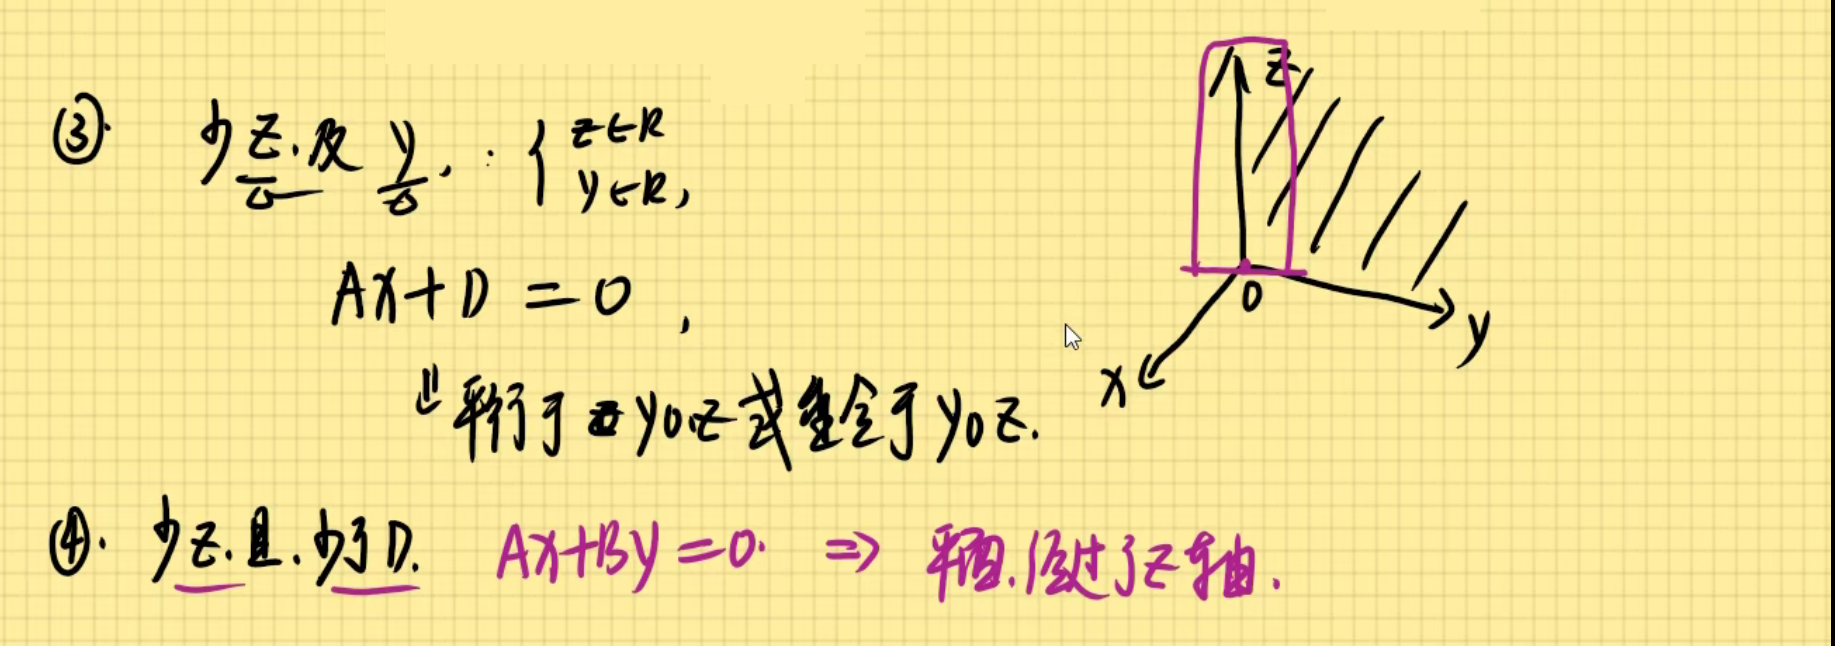 ③. 少z.及y, ∵ { z∈R
y∈R,
Ax+D=0,
⇓ 平行于yoz或重合于yoz.
④. 少z.且.少了D. Ax+By=0. ⇒ 平面.经过了z轴.
z
0
y
x